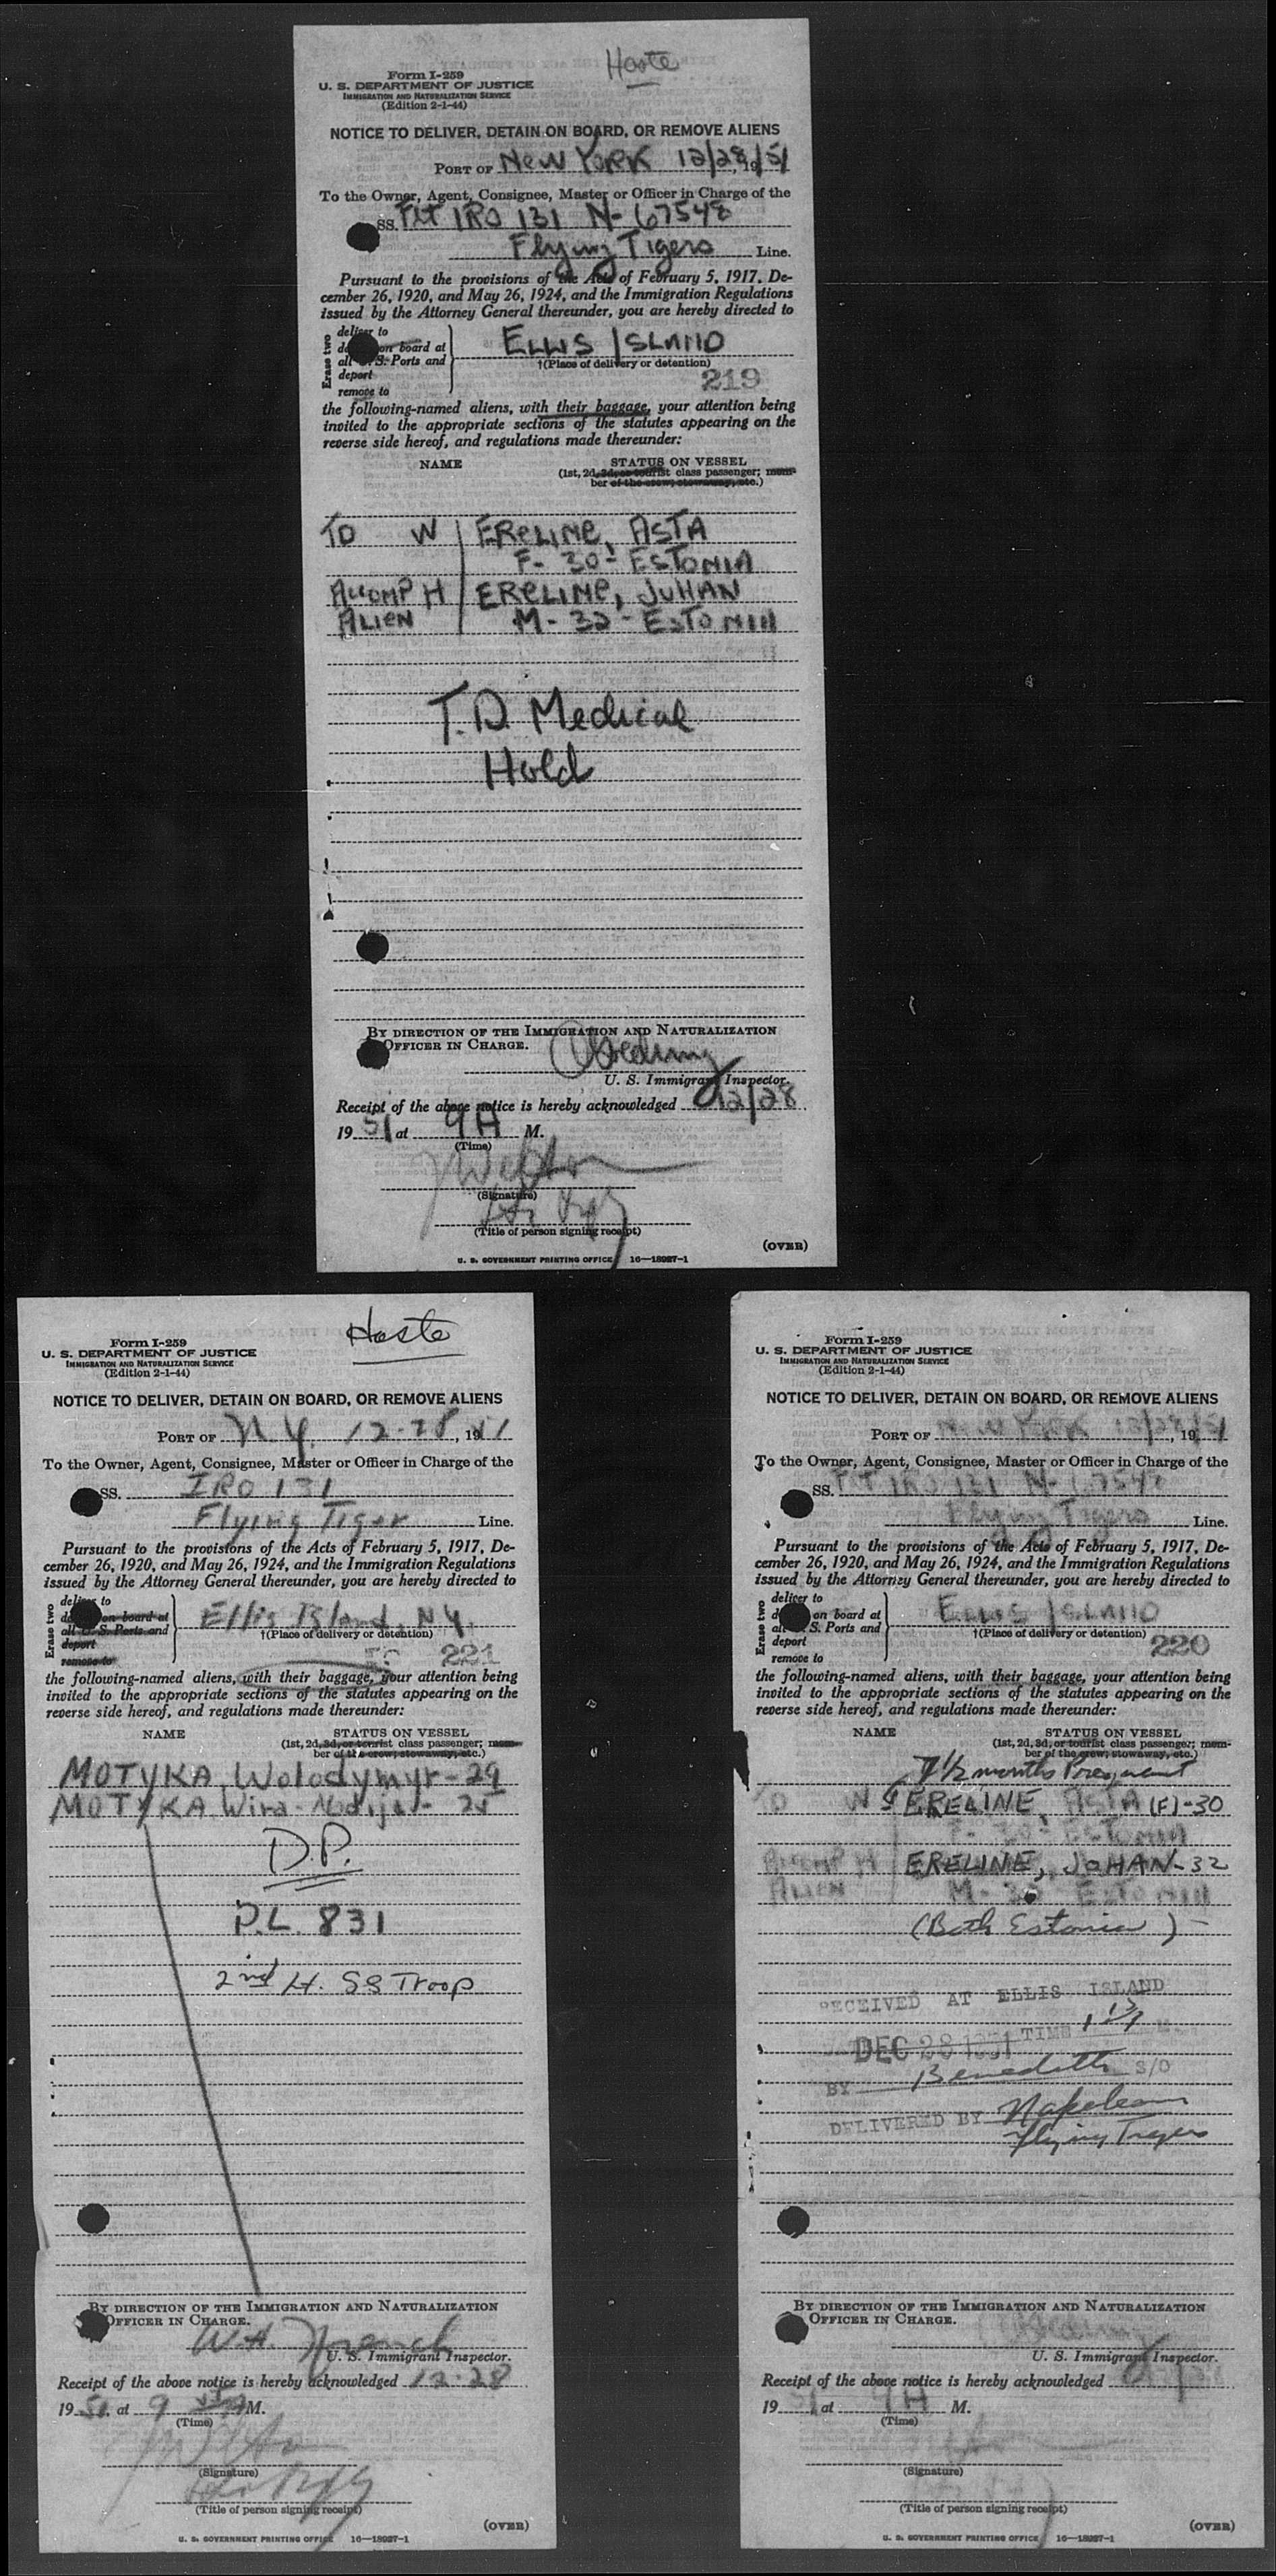 Haste
Form I-259
U. S. DEPARTMENT OF JUSTICE
IMMIGRATION AND NATURALIZATION SERVICE
(Edition 2-1-44)
NOTICE TO DELIVER, DETAIN ON BOARD, OR REMOVE ALIENS
PORT OF New York 12/28, 19/51
To the Owner, Agent, Consignee, Master or Officer in Charge of the
SS. Flt IRO 131 N-67548
Flying Tigers Line.
Pursuant to the provisions of the Acts of February 5, 1917, De-
cember 26, 1920, and May 26, 1924, and the Immigration Regulations
issued by the Attorney General thereunder, you are hereby directed to
Erase two
deliver to
on board at
all U. S. Ports and
deport
remove to
ELLIS ISLAND
†(Place of delivery or detention)
219
the following-named aliens, with their baggage, your attention being
invited to the appropriate sections of the statutes appearing on the
reverse side hereof, and regulations made thereunder:
NAME STATUS ON VESSEL
(1st, 2d, 3d, or tourist class passenger; mem-
ber of the crew; stowaway, etc.)
TD W ERELINE, ASTA
F- 30- ESTONIA
ACCOMP H ERELINE, JUHAN
ALIEN M- 32- ESTONIA
T.D. Medical
Hold
BY DIRECTION OF THE IMMIGRATION AND NATURALIZATION
OFFICER IN CHARGE.
U. S. Immigrant Inspector.
Receipt of the above notice is hereby acknowledged 12/28
19 51 at 9 A M.
(Time)
(Signature)
(Title of person signing receipt)
(OVER)
U. S. GOVERNMENT PRINTING OFFICE 16—18927-1
Haste
Form I-259
U. S. DEPARTMENT OF JUSTICE
IMMIGRATION AND NATURALIZATION SERVICE
(Edition 2-1-44)
NOTICE TO DELIVER, DETAIN ON BOARD, OR REMOVE ALIENS
PORT OF N.Y. 12-28, 1951
To the Owner, Agent, Consignee, Master or Officer in Charge of the
SS. IRO 131
Flying Tiger Line.
Pursuant to the provisions of the Acts of February 5, 1917, De-
cember 26, 1920, and May 26, 1924, and the Immigration Regulations
issued by the Attorney General thereunder, you are hereby directed to
Erase two
deliver to
on board at
all U. S. Ports and
deport
remove to
Ellis Island, N.Y.
†(Place of delivery or detention)
221
the following-named aliens, with their baggage, your attention being
invited to the appropriate sections of the statutes appearing on the
reverse side hereof, and regulations made thereunder:
NAME STATUS ON VESSEL
(1st, 2d, 3d, or tourist class passenger; mem-
ber of the crew; stowaway, etc.)
MOTYKA, Wolodymyr - 29
MOTYKA Wira
D.P.
P.L. 831
2nd Lt. SS Troop
BY DIRECTION OF THE IMMIGRATION AND NATURALIZATION
OFFICER IN CHARGE.
W.A.
U. S. Immigrant Inspector.
Receipt of the above notice is hereby acknowledged 12-28
19 51 at 9 M.
(Time)
(Signature)
(Title of person signing receipt)
(OVER)
U. S. GOVERNMENT PRINTING OFFICE 16—18927-1
Form I-259
U. S. DEPARTMENT OF JUSTICE
IMMIGRATION AND NATURALIZATION SERVICE
(Edition 2-1-44)
NOTICE TO DELIVER, DETAIN ON BOARD, OR REMOVE ALIENS
PORT OF New York 12/28, 19/51
To the Owner, Agent, Consignee, Master or Officer in Charge of the
SS. Flt IRO 131 N-67548
Flying Tigers Line.
Pursuant to the provisions of the Acts of February 5, 1917, De-
cember 26, 1920, and May 26, 1924, and the Immigration Regulations
issued by the Attorney General thereunder, you are hereby directed to
Erase two
deliver to
on board at
all U. S. Ports and
deport
remove to
ELLIS ISLAND
†(Place of delivery or detention)
220
the following-named aliens, with their baggage, your attention being
invited to the appropriate sections of the statutes appearing on the
reverse side hereof, and regulations made thereunder:
NAME STATUS ON VESSEL
(1st, 2d, 3d, or tourist class passenger; mem-
ber of the crew; stowaway, etc.)
7 1/2 months Pregnant
TD W ERELINE, ASTA (F)-30
F- 30- ESTONIA
ACCOMP H ERELINE, JOHAN-32
ALIEN M- ESTONIA
(Both Estonia) -
RECEIVED AT ELLIS ISLAND
DEC 28 1951 TIME M.
BY Benedetto S/O
DELIVERED BY Napoleon
Flying Tigers
BY DIRECTION OF THE IMMIGRATION AND NATURALIZATION
OFFICER IN CHARGE.
U. S. Immigrant Inspector.
Receipt of the above notice is hereby acknowledged
19 51 at 9 A M.
(Time)
(Signature)
(Title of person signing receipt)
(OVER)
U. S. GOVERNMENT PRINTING OFFICE 16—18927-1